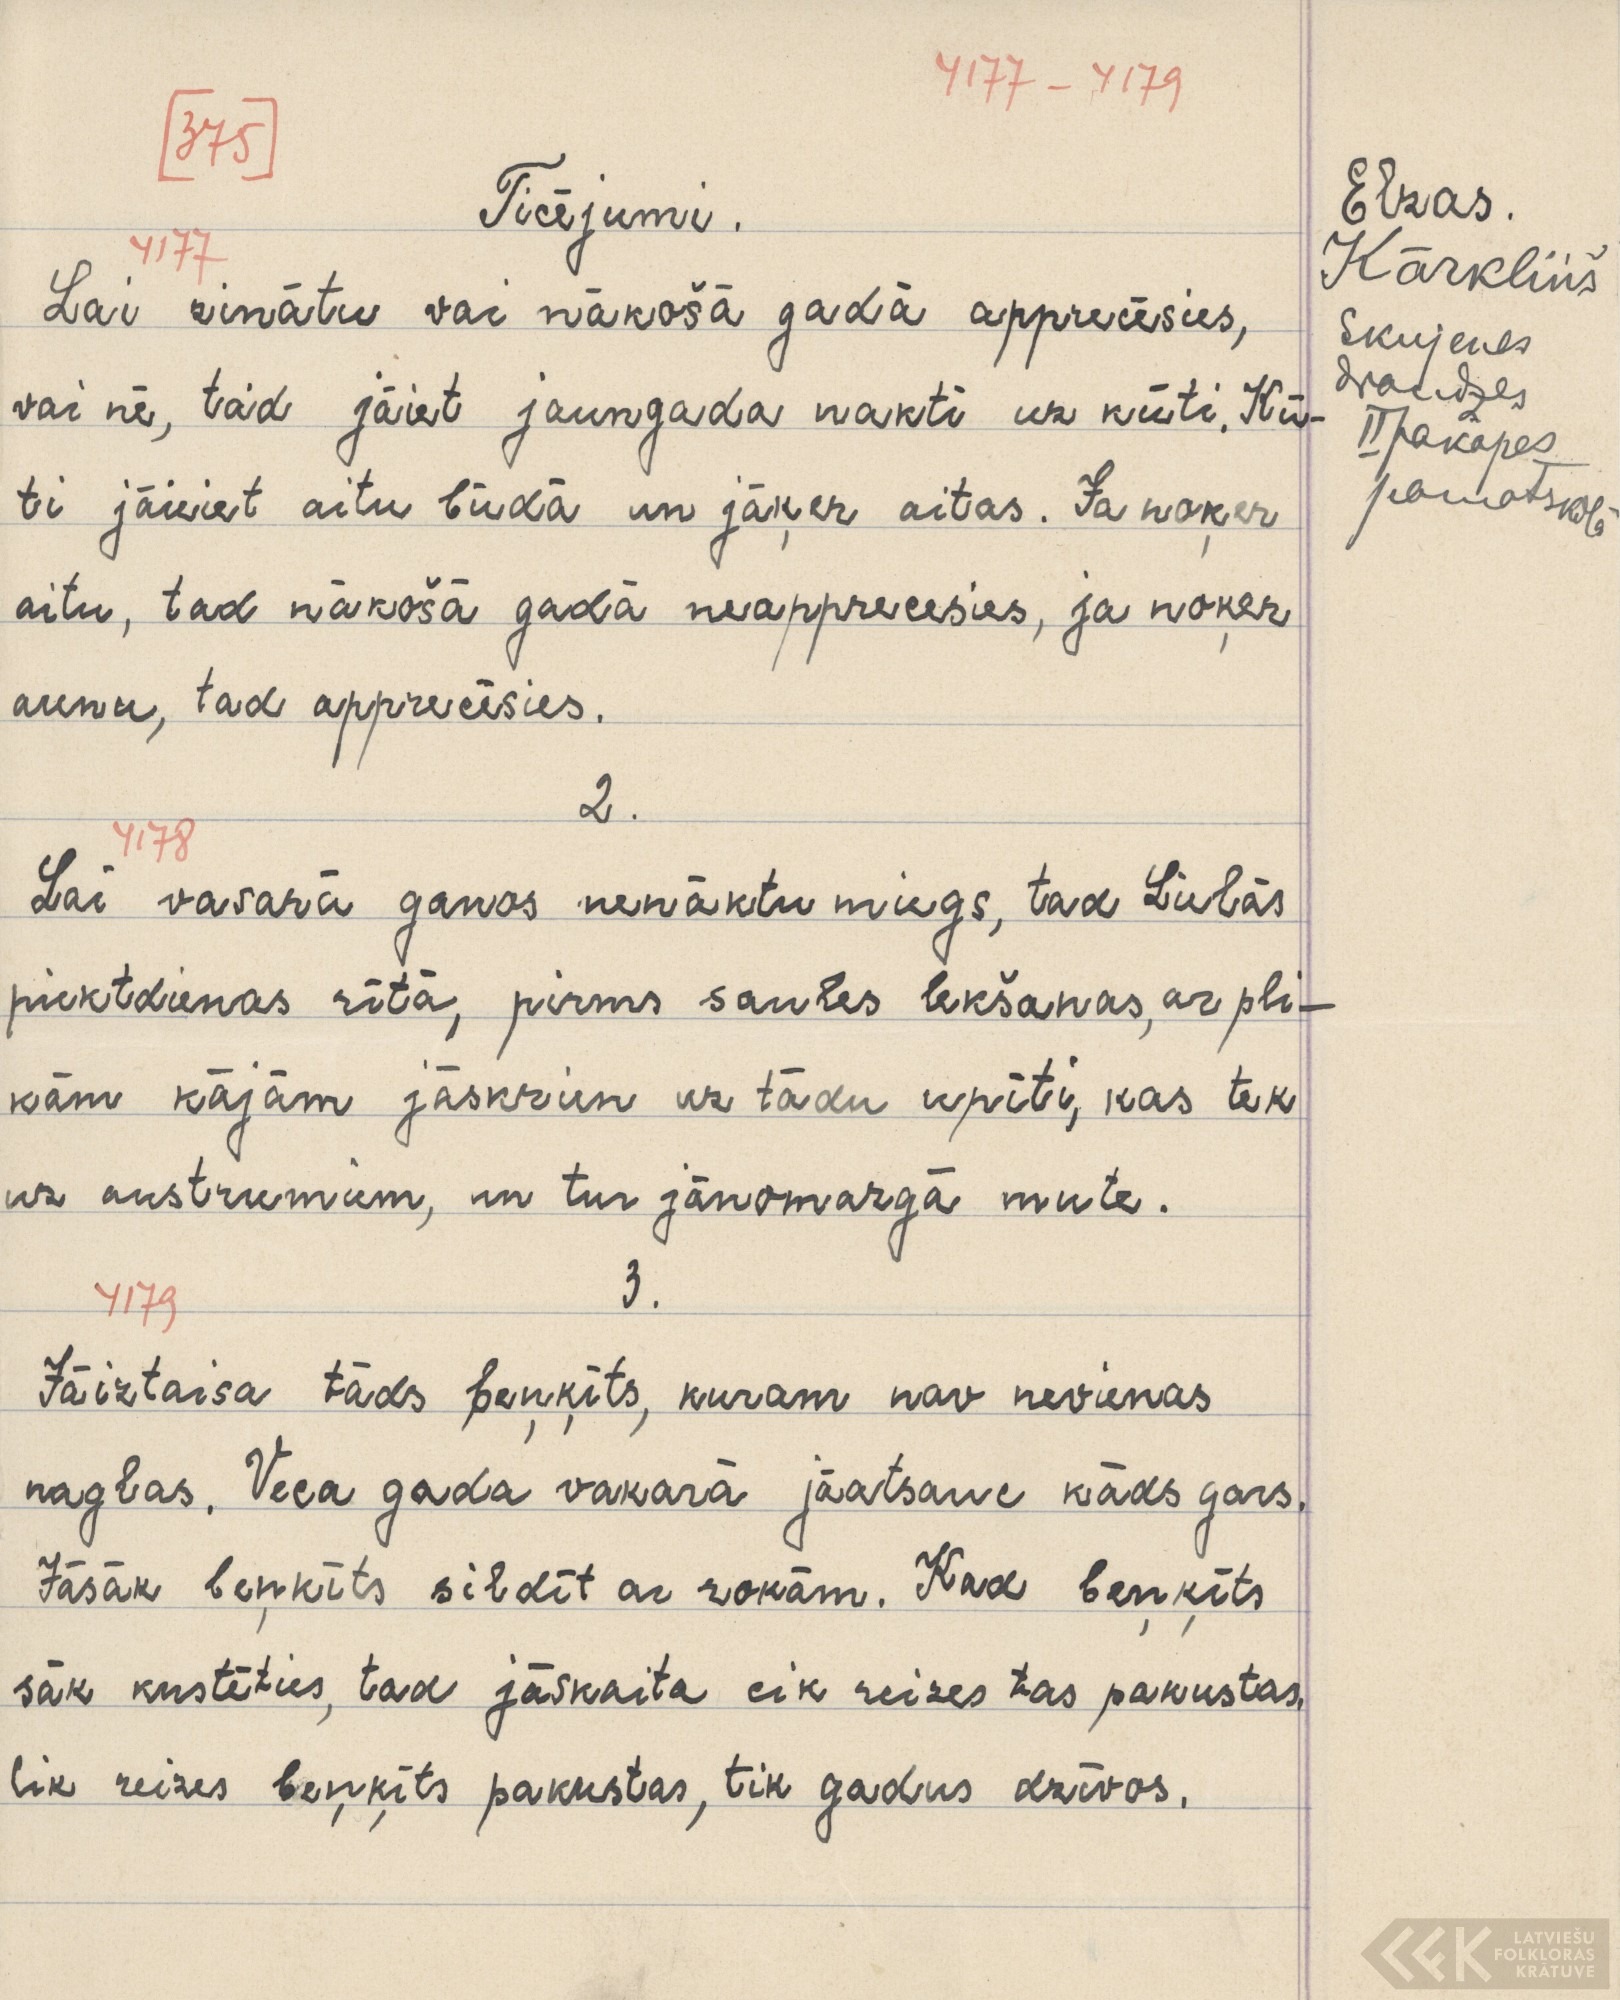 4177 – 4179
[375]
Ticējumi.
4177
Lai zinātu vai nākošā gadā apprecēsies,
vai nē, tad jāiet jaungada naktī uz kūti. Kū-
tī jāieiet aitu būdā un jāķer aitas. Ja noķer
aitu, tad nākošā gadā neapprecesies, ja noķer
aunu, tad apprecēsies.
2.
4178
Lai vasarā ganos nenāktu miegs, tad Lielās
piektdienas rītā, pirms saules lekšanas, ar pli-
kām kājām jāskrien uz tādu upīti, kas tek
uz austrumiem, un tur jānomazgā mute.
3.
4179
Jāiztaisa tāds beņķīts, kuram nav nevienas
naglas. Veca gada vakarā jāatsauc kāds gars.
Jāsāk beņķīts sildīt ar rokām. Kad beņķīts
sāk kustēties, tad jāskaita cik reizes tas pakustas.
Cik reizes beņķīts pakustas, tik gadus dzīvos.
Elzas.
Kārkliņš
Skujenes
draudzes
II pakāpes
pamatskolā
LATVIEŠU
FOLKLORAS
KRĀTUVE